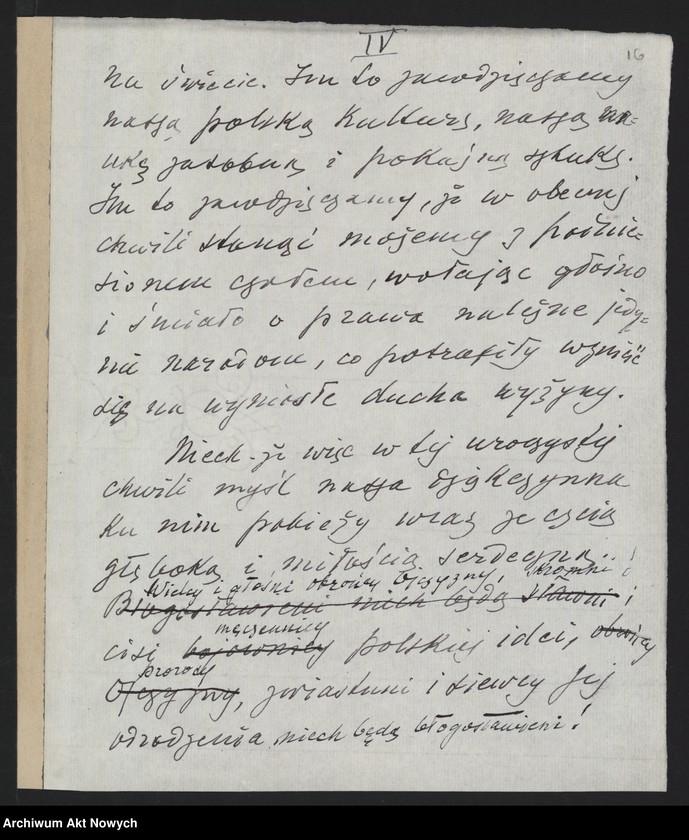 IV
16
na świecie. Im to zawdzięczamy
naszą polską kulturę, naszą na-
ukę zasobną i pokaźną sztukę.
Im to zawdzięczamy, że w obecnej
chwili stanąć możemy z podnie-
sionem czołem, wołając głośno
i śmiało o prawa należne jedy-
nie narodom, co potrafiły wznieść
się na wyniosłe ducha wyżyny.
Niech-że więc w tej uroczystej
chwili myśl nasza dziękczynna
ku nim pobieży wraz ze czcią
głęboką i miłością serdeczną..!
Wielcy i głośni obrońcy Ojczyzny, skromni i
Błogosławieni niech będą sławni i
męczennicy
cisi bojownicy polskiej idei, obrońcy
prorocy
Ojczyzny, zwiastuni i siewcy Jej
odrodzenia niech będą błogosławieni!
Archiwum Akt Nowych